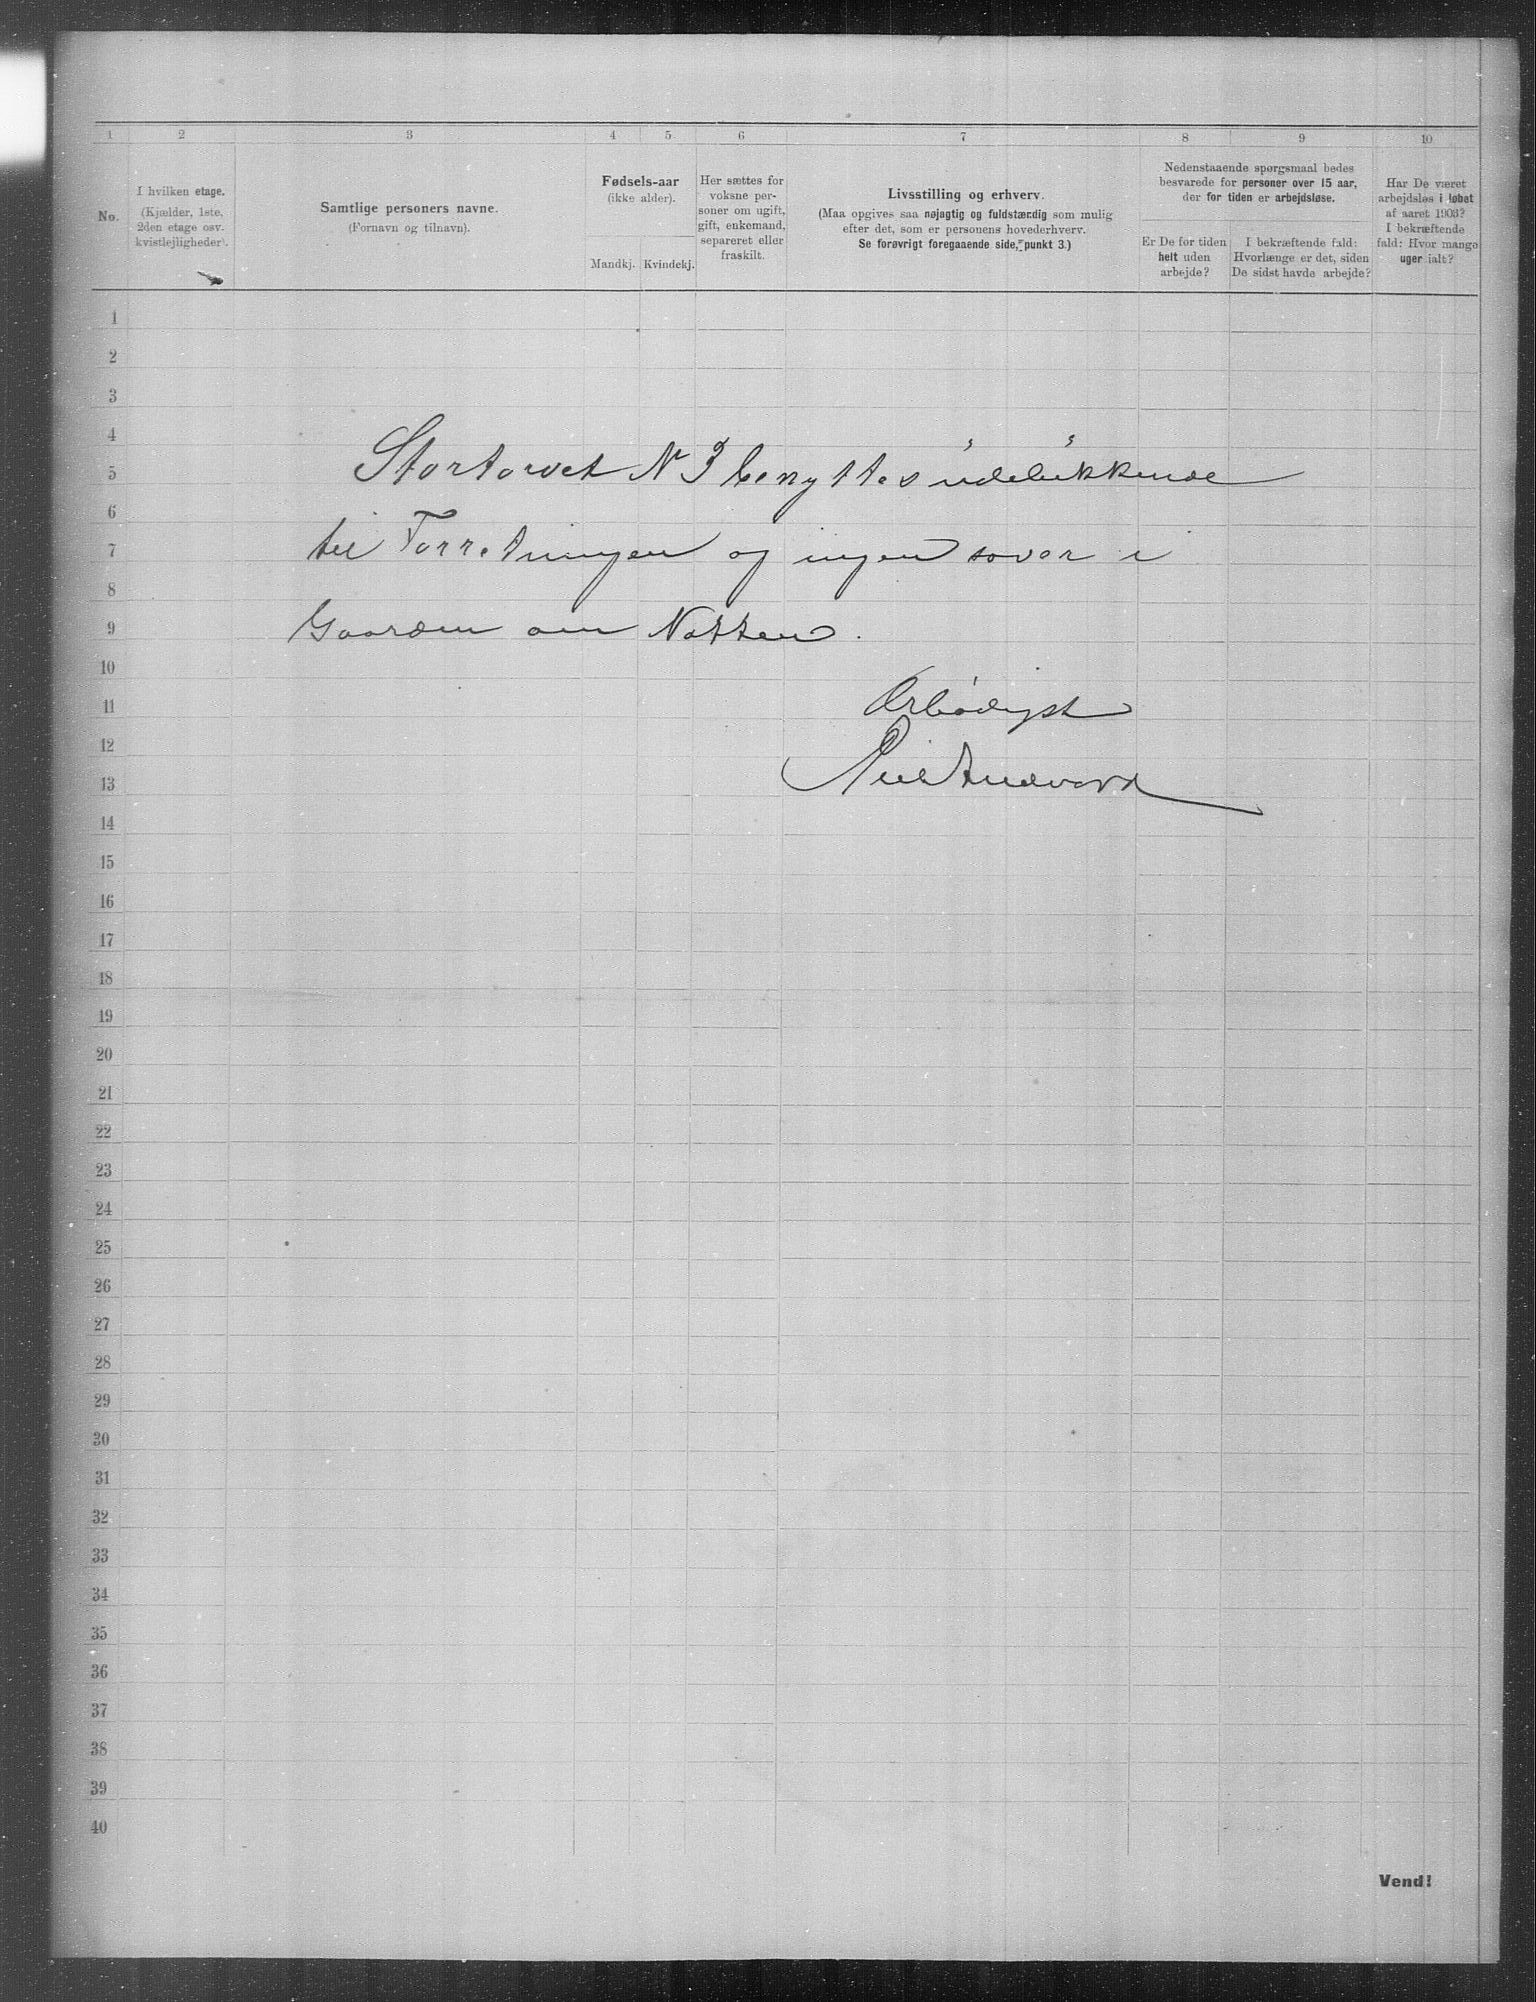 1 2 3 4 5 6 7 8 9 10
No.
I hvilken etage.
(Kjælder, 1ste,
2den etage osv.
kvistlejligheder).
Samtlige personers navne.
(Fornavn og tilnavn).
Fødsels-aar
(ikke alder).
Mandkj. Kvindekj.
Her sættes for
voksne per-
soner om ugift,
gift, enkemand,
separeret eller
fraskilt.
Livsstilling og erhverv.
(Maa opgives saa nøjagtig og fuldstændig som mulig
efter det, som er personens hovederhverv.
Se forøvrigt foregaaende side, punkt 3.)
Nedenstaaende spørgsmaal bedes
besvarede for personer over 15 aar,
der for tiden er arbejdsløse.
Er De for tiden
helt uden
arbejde?
I bekræftende fald:
Hvorlænge er det, siden
De sidst havde arbejde?
Har De været
arbejdsløs i løbet
af aaret 1903?
I bekræftende
fald: Hvor mange
uger ialt?
1
2
3
4
5
6
7
8
9
10
11
12
13
14
15
16
17
18
19
20
21
22
23
24
25
26
27
28
29
30
31
32
33
34
35
36
37
38
39
40
Stortorvet N 3 benyttes udelukkende
til Forretningen og ingen sover i
Gaarden om Natten.
Ærbødigst
Vend!